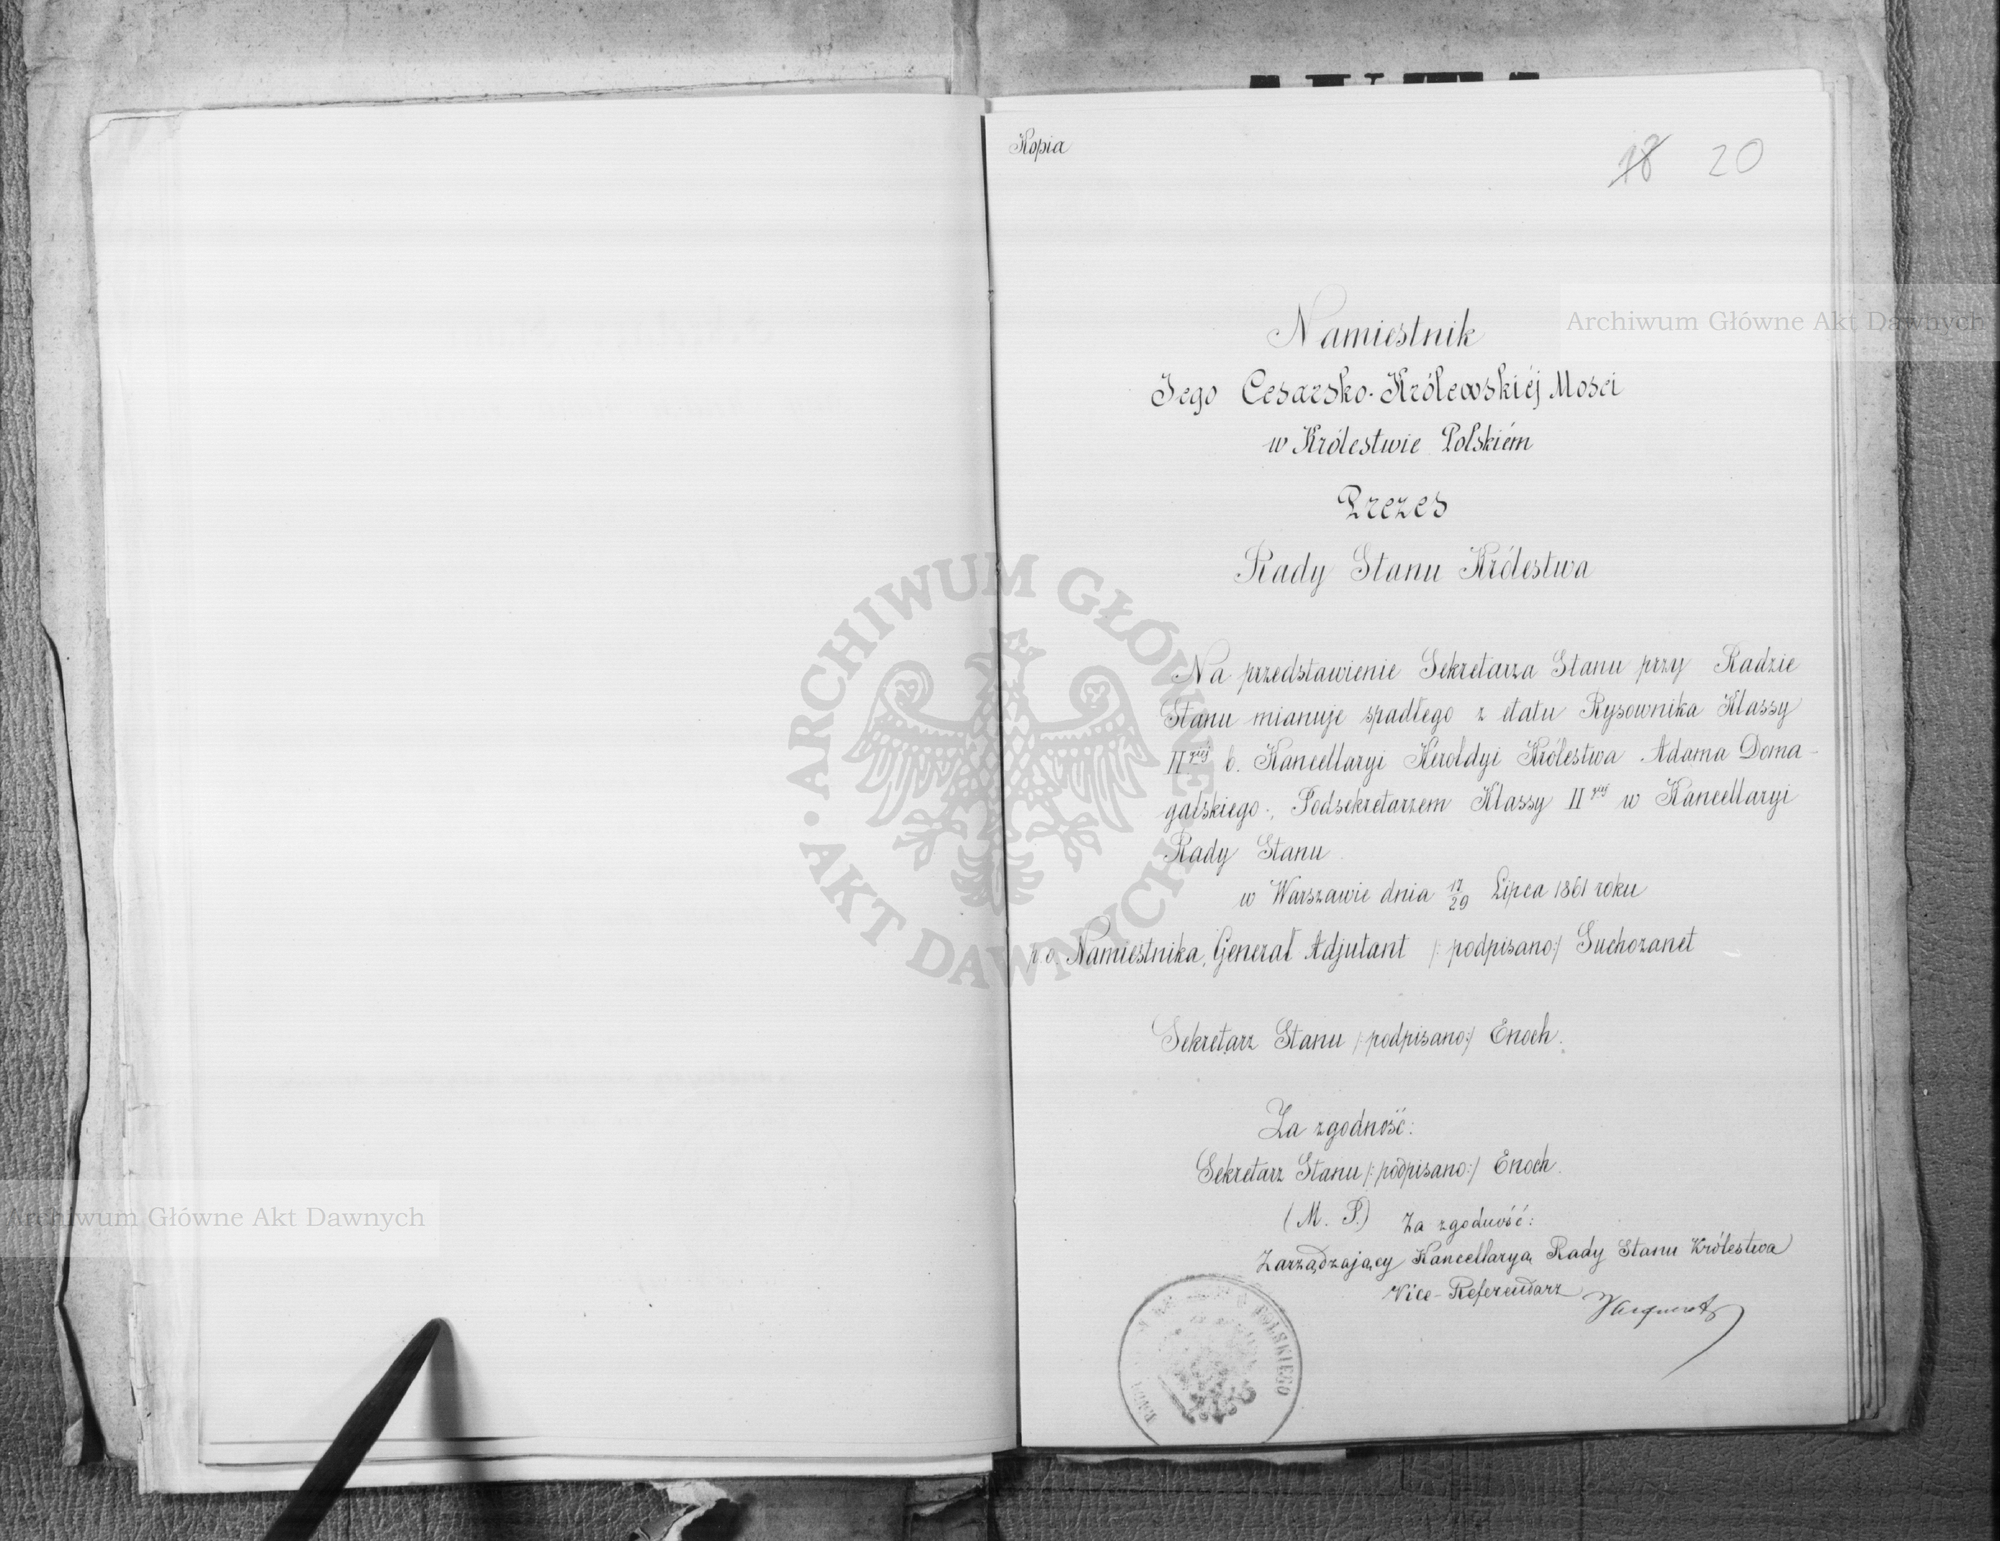 Kopia
18 20
Namiestnik
Jego Cesarsko-Królewskiéj Mosci
w Królestwie Polskiém
Prezes
Rady Stanu Królestwa
Na przedstawienie Sekretarza Stanu przy Radzie
Stanu mianuje spadłego z etatu Rysownika Klassy
II giéj b. Kancellaryi Heroldyi Królestwa Adama Doma-
galskiego, Podsekretarzem Klassy II giéj w Kancellaryi
Rady Stanu
w Warszawie dnia 17/29 Lipca 1861 roku
p.o. Namiestnika, Generał Adjutant /:podpisano:/ Suchozanet
Sekretarz Stanu /:podpisano:/ Enoch.
Za zgodność:
Sekretarz Stanu /:podpisano:/ Enoch.
(M. P.) Za zgodność:
Zarządzający Kancellaryą Rady Stanu Królestwa
Vice-Referendarz
POLSKIEGO
Archiwum Główne Akt Dawnych
Archiwum Główne Akt Dawnych
ARCHIWUM GŁÓWNE AKT DAWNYCH